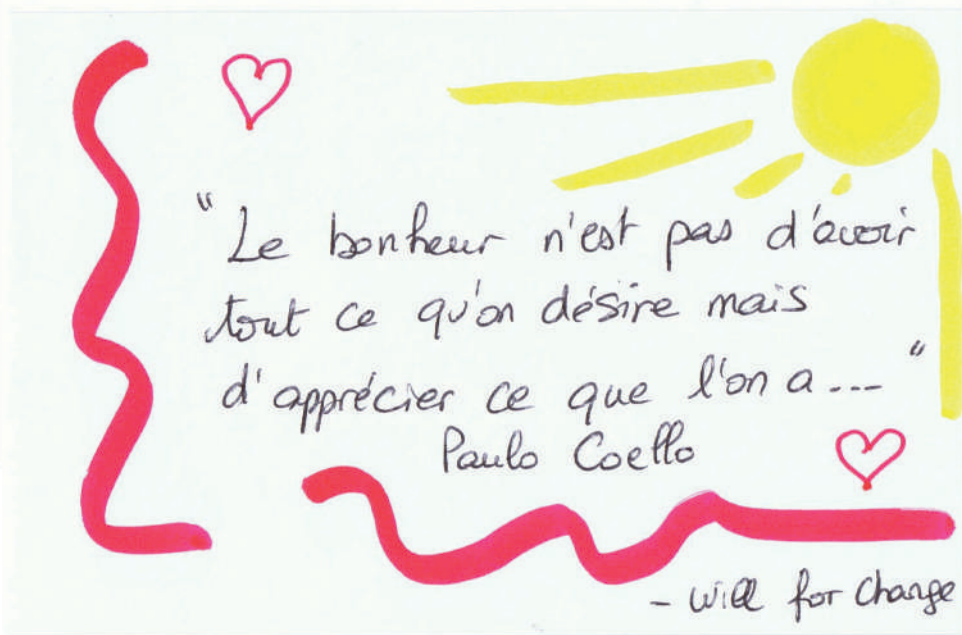 "Le bonheur n'est pas d'avoir
tout ce qu'on désire mais
d'apprécier ce que l'on a..."
Paulo Coello
- Will for Change